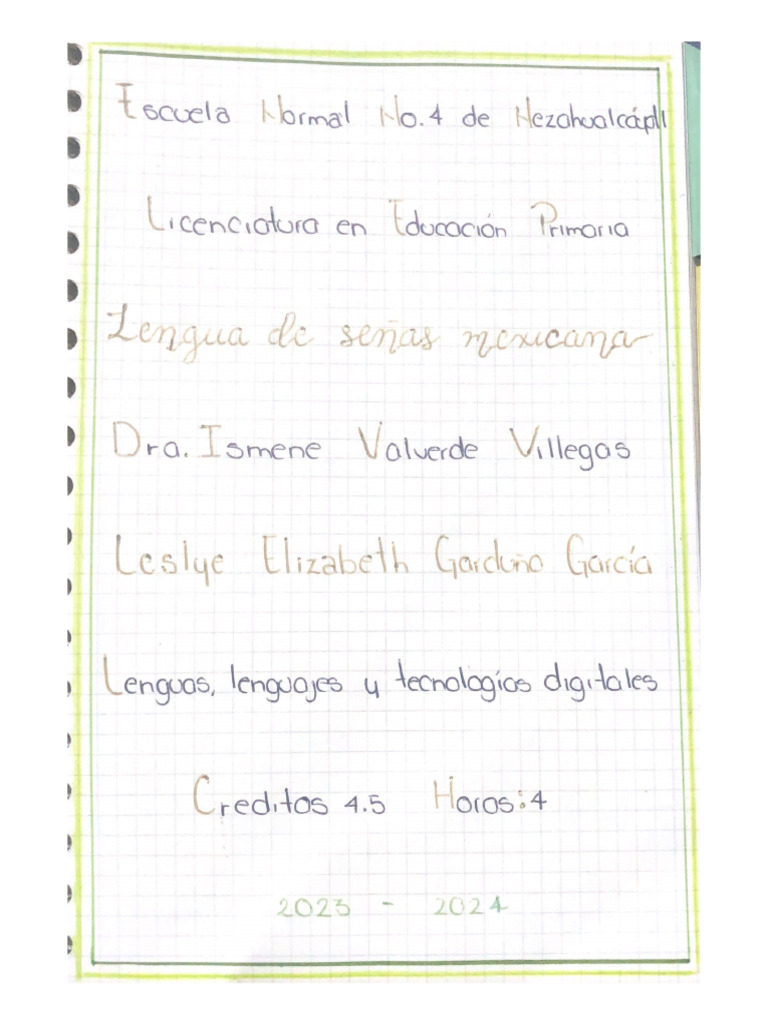 Escuela Normal No.4 de Nezahualcóyotl
Licenciatura en Educación Primaria
Lengua de señas mexicana
Dra. Ismene Valverde Villegas
Leslye Elizabeth Garduño García
Lenguas, lenguajes y tecnologías digitales
Creditos 4.5 Horas:4
2023 - 2024